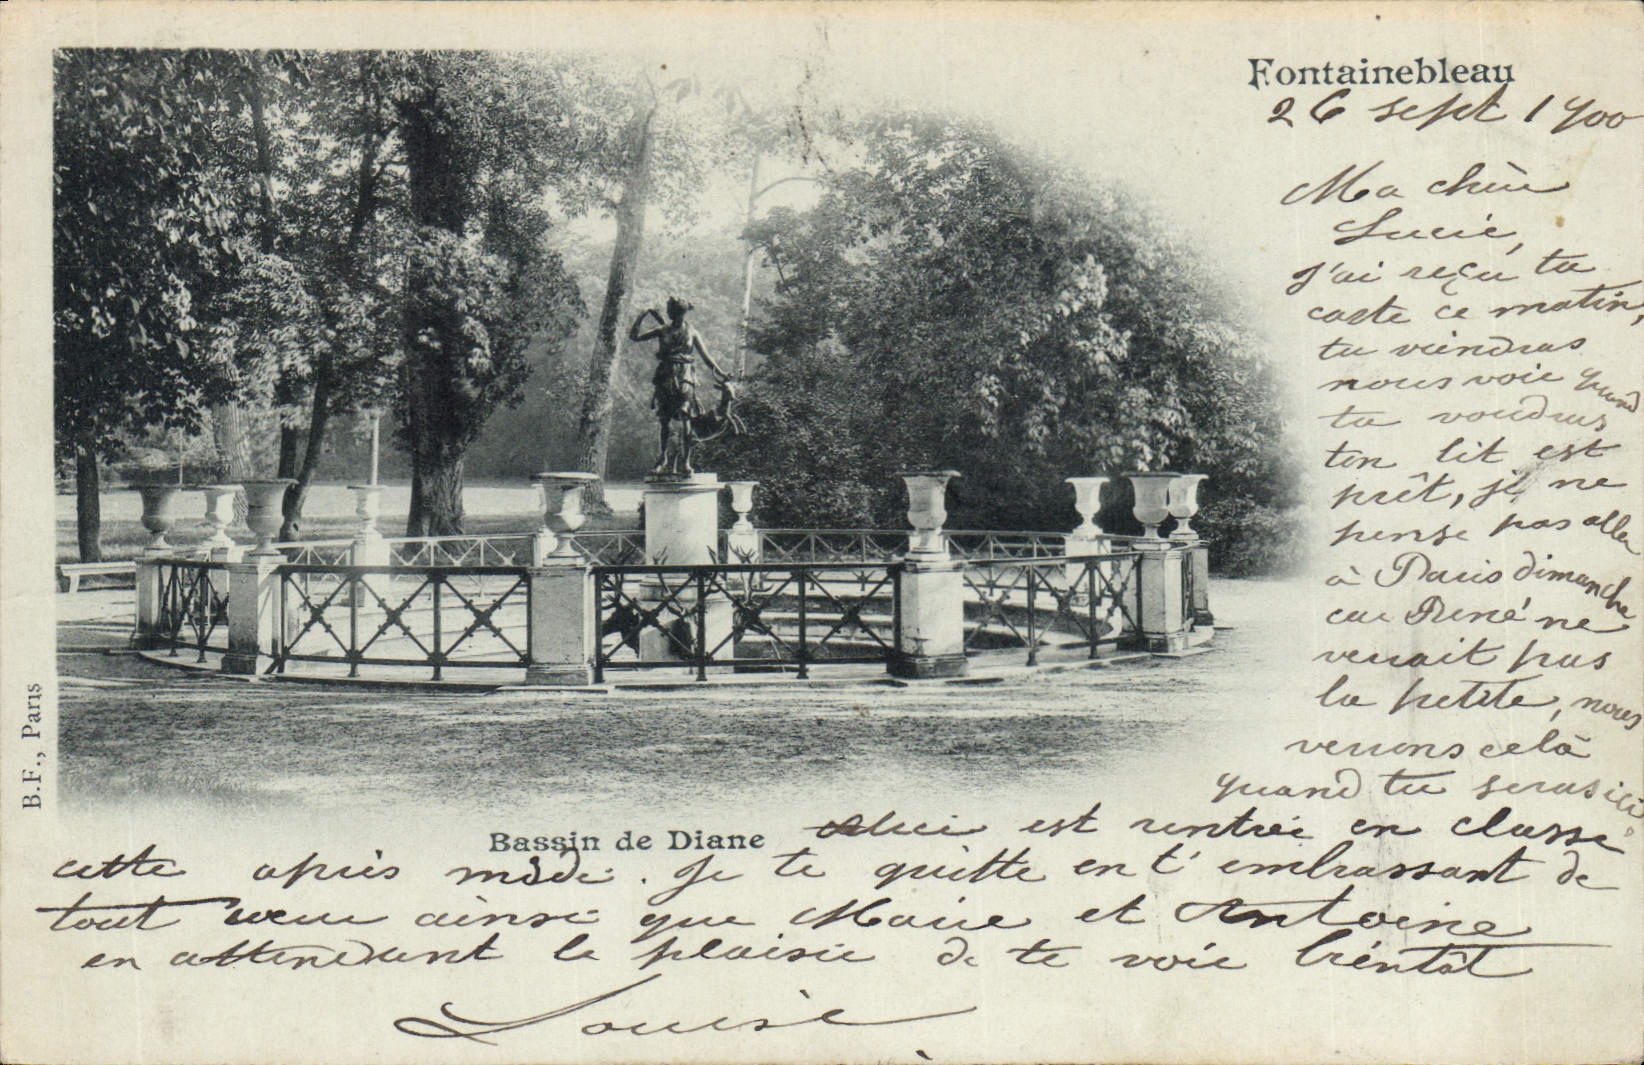 Fontainebleau
26 sept 1900
Ma chère
Lucie,
j'ai reçu ta
carte ce matin,
tu viendras
nous voir quand
tu voudras
ton lit est
prêt, je ne
pense pas aller
à Paris dimanche
car René ne
verrait pas
la petite, nous
verrons celà
quand tu seras ici.
est rentrée en classe
cette après midi. Je te quitte en t'embrassant de
tout cœur ainsi que Marie et Antoine
en attendant le plaisir de te voir bientôt
Louise
Bassin de Diane
B.F., Paris